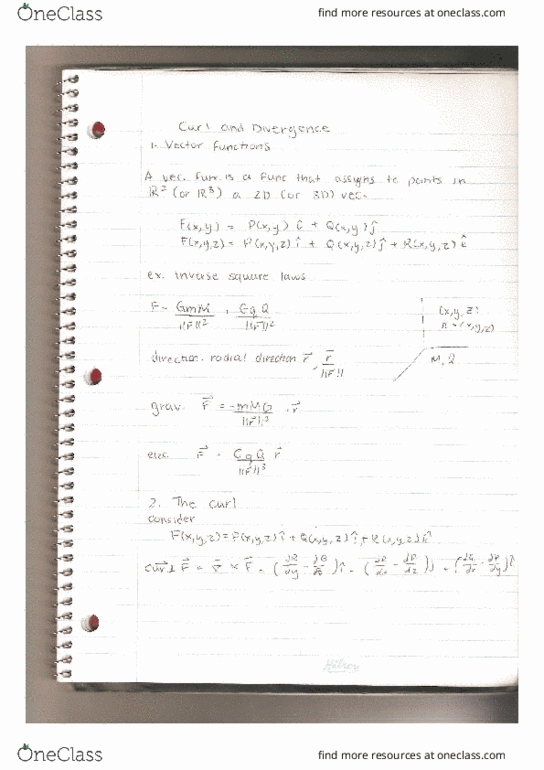 OneClass
find more resources at oneclass.com
Curl and Divergence
1. Vector Functions
A vec. func is a func that assigns to points in
ℝ² (or ℝ³) a 2D (or 3D) vec.
F(x,y) = P(x,y) î + Q(x,y) ĵ
F(x,y,z) = P(x,y,z) î + Q(x,y,z) ĵ + R(x,y,z) k̂
ex. inverse square laws
F = GmM / ||r||² , CqQ / ||r||²
(x,y,z)
M, Q
direction: radial direction r⃗, r⃗ / ||r||
grav. F⃗ = -mMG / ||r||³ · r⃗
elec. F⃗ = CqQ / ||r||³ r⃗
2. The curl
consider
F(x,y,z) = P(x,y,z) î + Q(x,y,z) ĵ + R(x,y,z) k̂
curl F⃗ = ∇ × F⃗ =
Hilroy
OneClass
find more resources at oneclass.com